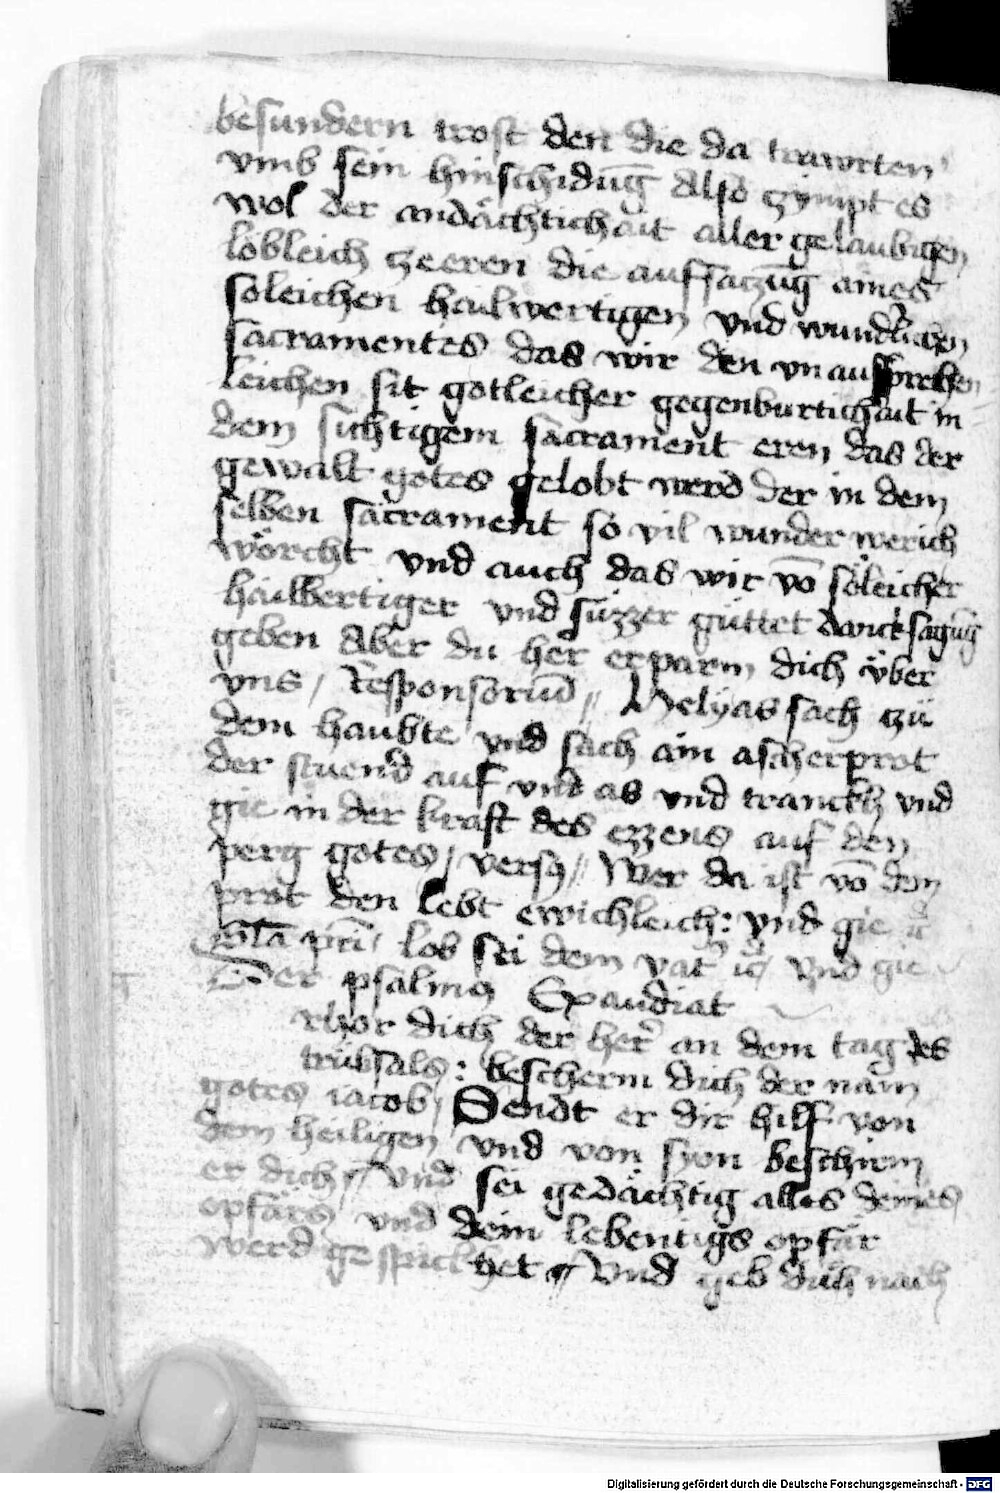 besundern trost den die da trawrten
vmb sein hinschidūg Also zÿmpt es
wol der andächtichait aller gelaubigen
löbleich zeeren die aufsaczūg aines
soleichen hailwertigen vnd wundʼlichen
sacramentes das wir den vnaussprechen
leichen sit gotleicher gegenburtichait in
dem sichtigem sacrament eren das der
gewalt gotes gelobt werd der in dem
selben sacrament so vil wunder werich
wörcht vnd auch das wir vō söleicher
hailbertiger vnd süzzer güttet danck sagūg
geben Aber du her erparm dich über
vns / Responsoriū // Helyas sach zü
dem haubte vnd sach ain ascherprot
der stuend auf vnd as vnd tranckh vnd
gie in der kraft des ezzens auf den
perg gotes / versꝫ // Wer da ist vō dem
prot den lebt ewichleich : vnd gie
Gla pri / lob sei dem vatʼ vnd gie
Der psalmꝫ Exaudiat
rhör dich der herʼ an dem tag des
trübsals : bescherm dich der nam
gotes iacob / Sendt er dir hilf von
dem heiligen vnd von syon beschirm
er dich // Vnd sei gedächtig alles deines
opfärs vnd dein lebentigs opfär
werd gespickhet // Vnd geb dich nach
Digitalisierung gefördert durch die Deutsche Forschungsgemeinschaft - DFG